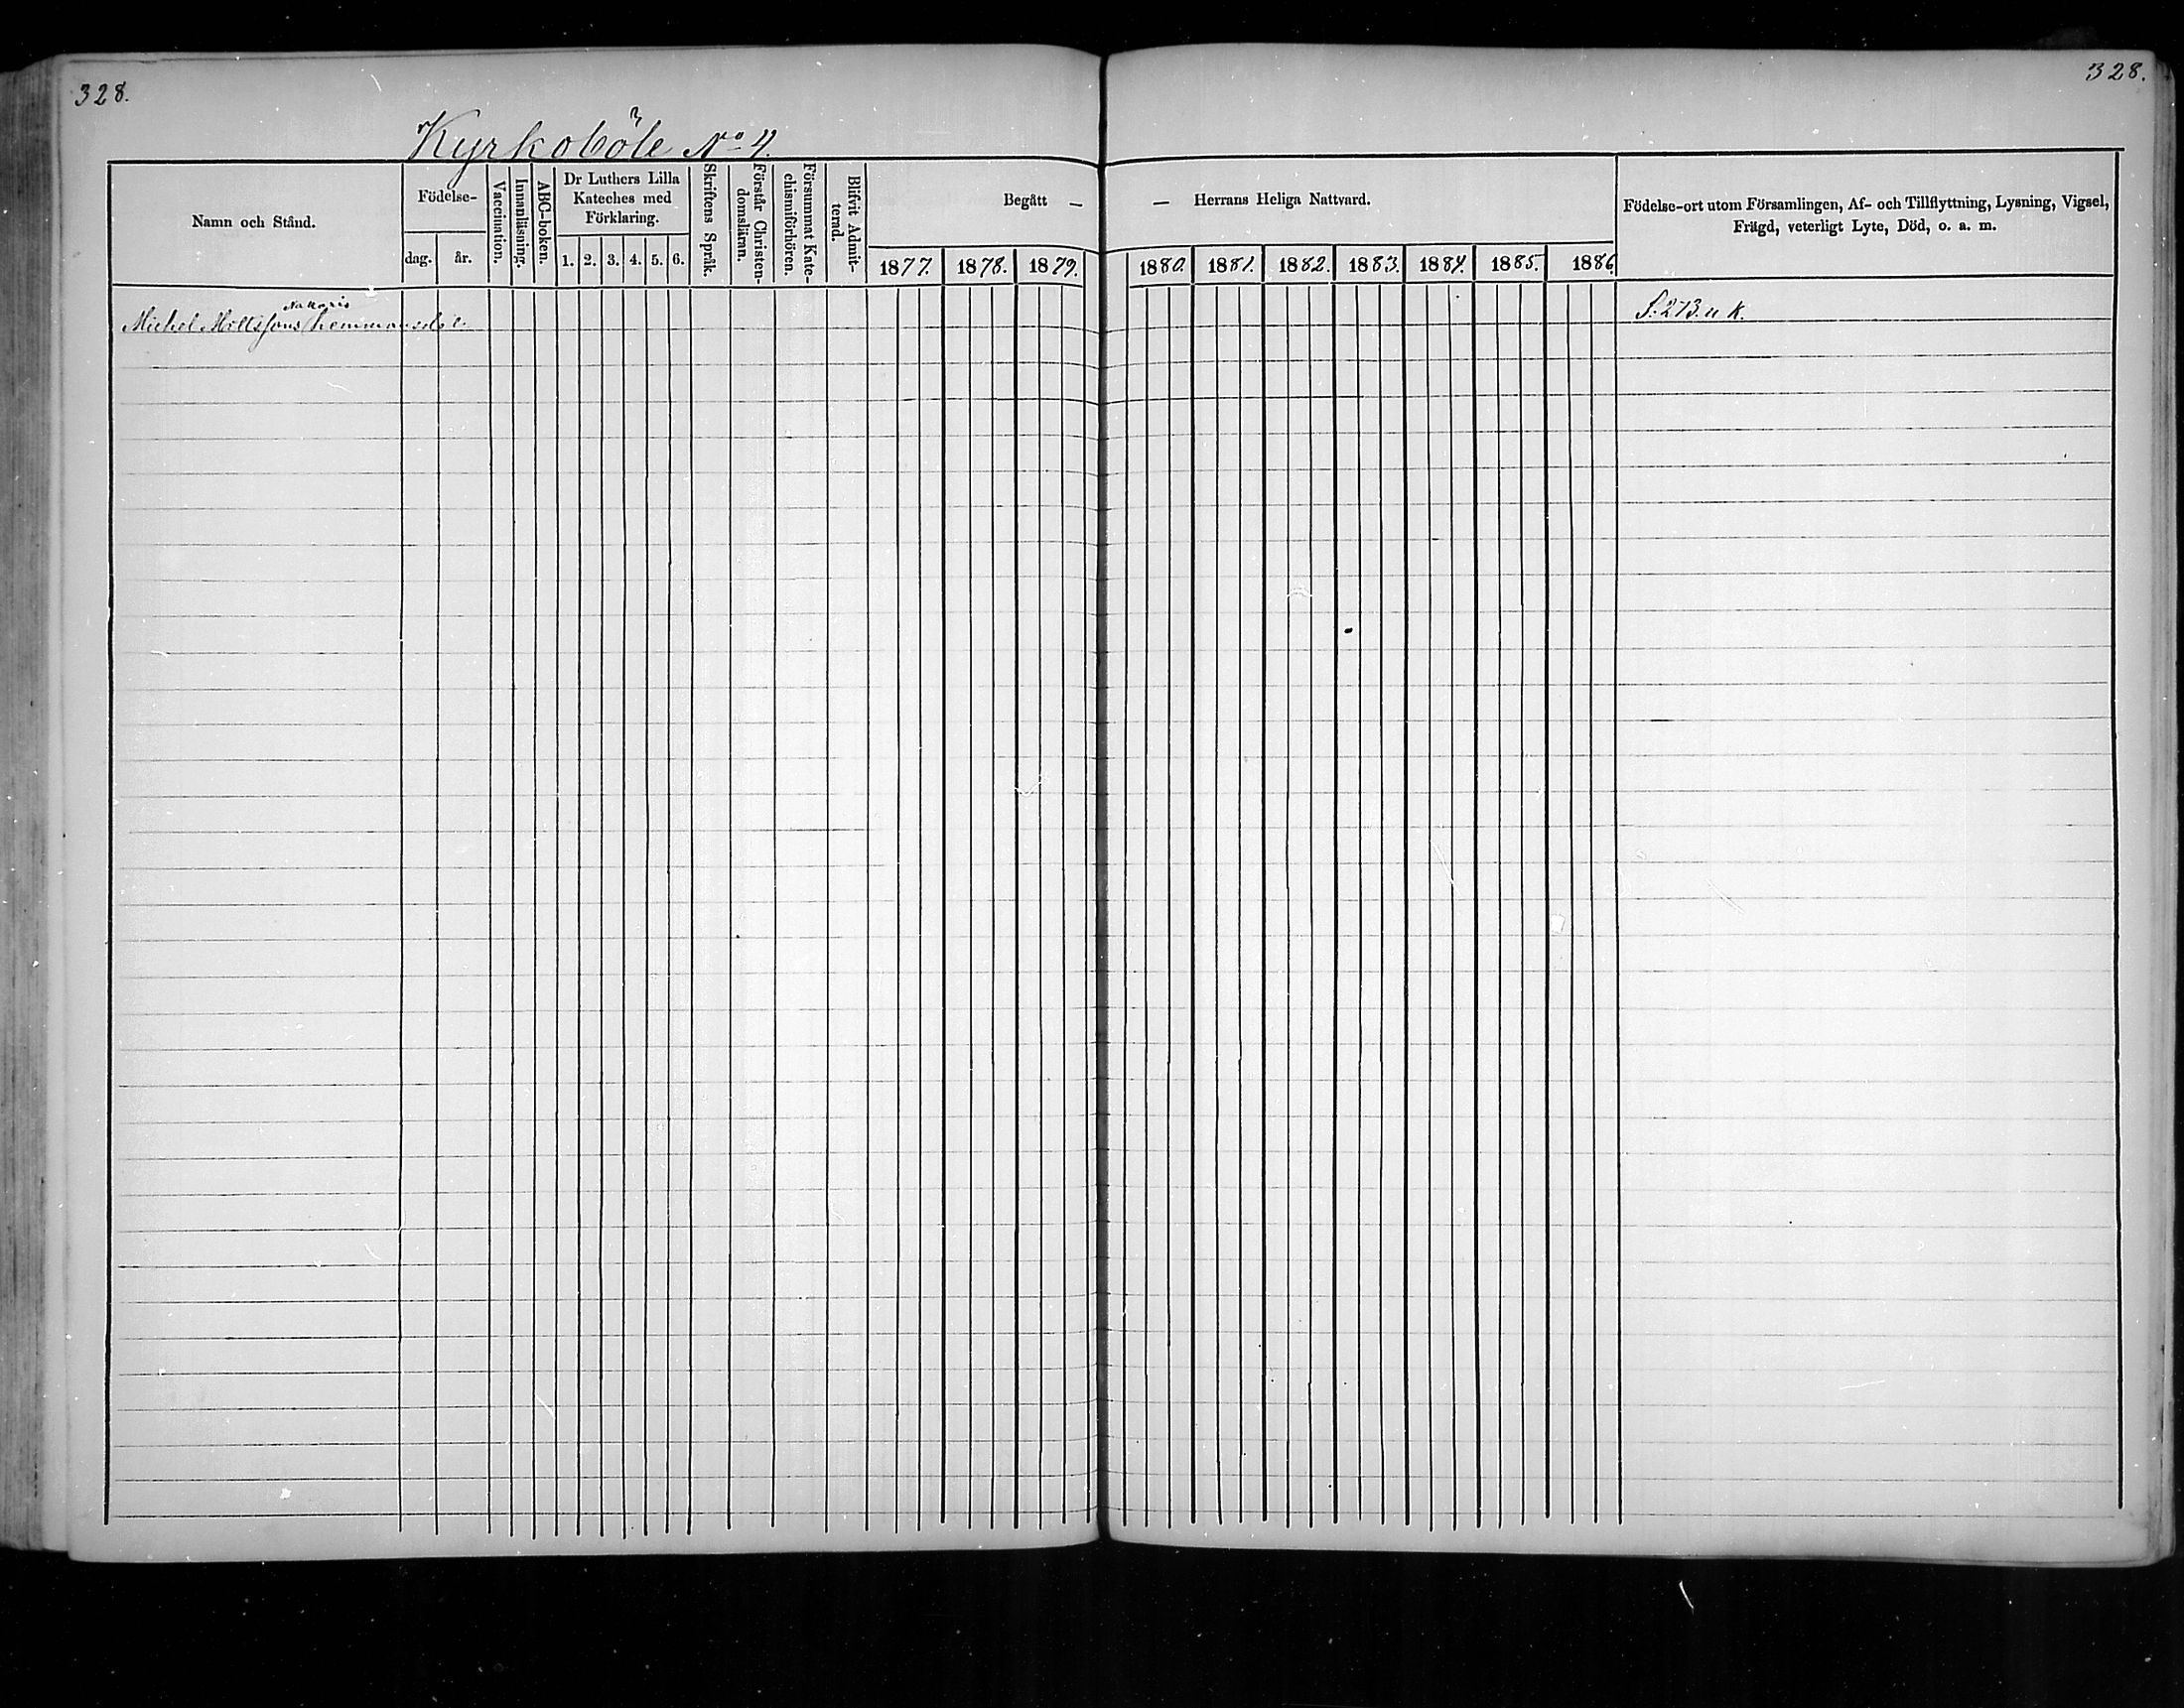 328.
328.
Kyrkoböle No 4.
Namn och Stånd.
Födelse-
dag.
år.
Vaccination.
Innanläsning.
ABC-boken.
Dr Luthers Lilla
Kateches med
Förklaring.
1. 2. 3. 4. 5. 6.
Skriftens Språk.
Förstår Christen-
domsläran.
Försummat Kate-
chismiförhören.
Blifvit Admit-
terad.
Begått —
— Herrans Heliga Nattvard.
1877. 1878. 1879. 1880. 1881. 1882. 1883. 1884. 1885. 1886
Födelse-ort utom Församlingen, Af- och Tillflyttning, Lysning, Vigsel,
Frägd, veterligt Lyte, Död, o. a. m.
Michel Mattssons hemmansdel
S. 273. n K.